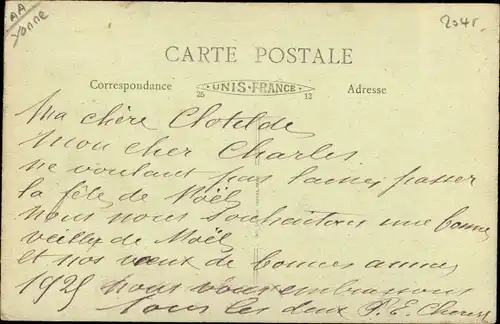 AA
Yonne
CARTE POSTALE
Correspondance
UNIS-FRANCE
25 13
Adresse
Ma chère Clotilde
mon cher Charles
ne voulant pas laisser passer
la fête de Noël
nous nous souhaitons une bonne
veillée de Noël
et nos vœux de bonnes années
1925 nous vous embrassons
tous les deux P. E.